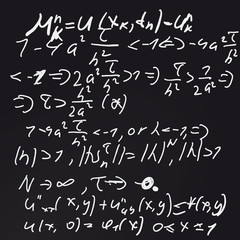 μᵏₙ = u(xₖ, tₙ) − uⁿₖ
1 − 4a² τ/h² < −1 ⇔ −4a² τ/h²
< −1 ⇒ 2a² τ/h² > 1 ⇒ τ/h² > 1/2a² =
⇒ τ > h² (α)
1 − 4a² τ/h² < −1, or λ < −1, ⇒
|λ| > 1, |λⁿ| = |λ|ᴺ, |λ| > 1
N → ∞, τ → 0.
u″ₓₓ(x, y) + u″ᵧᵧ(x, y) ≤ f(x, y)
u(x, 0) = φ₁(x) 0 ≤ x ≤ 1